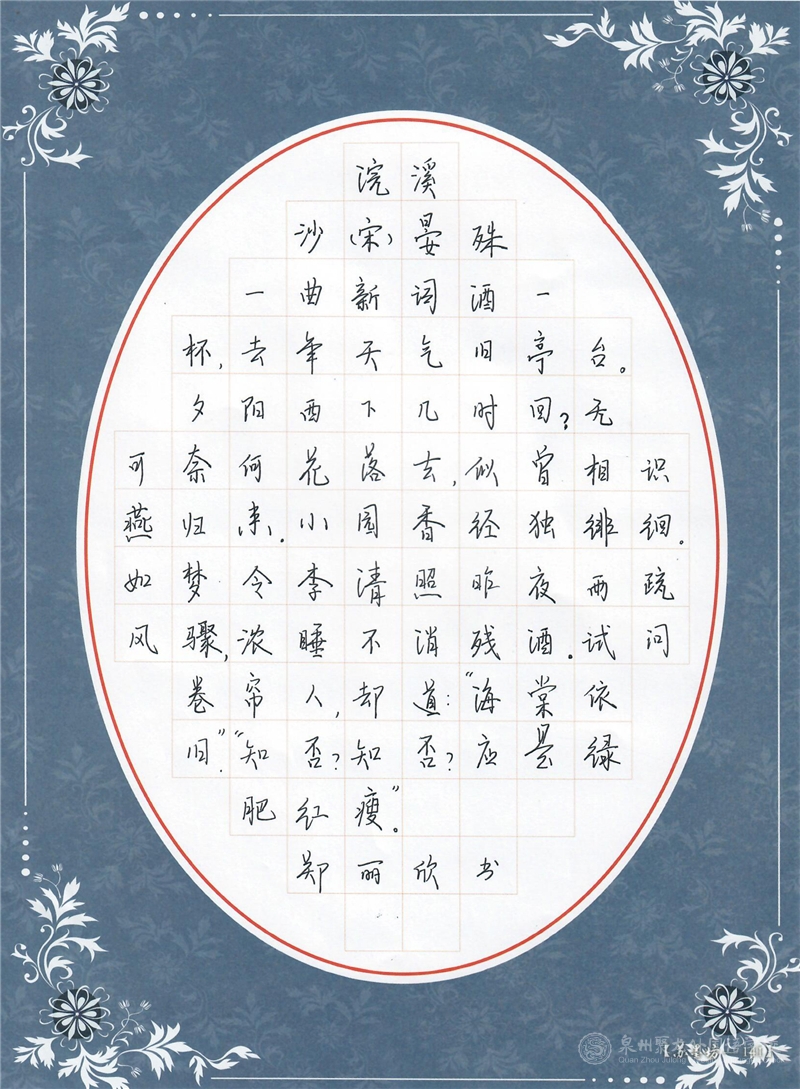 浣溪
沙(宋)晏殊
一曲新词酒一
杯,去年天气旧亭台。
夕阳西下几时回?无
可奈何花落去,似曾相识
燕归来。小园香径独徘徊。
如梦令李清照昨夜雨疏
风骤,浓睡不消残酒。试问
卷帘人,却道:“海棠依
旧”。“知否?知否?应是绿
肥红瘦”。
郑丽欣书
泉州聚龙外国语学校
Quan Zhou Julong